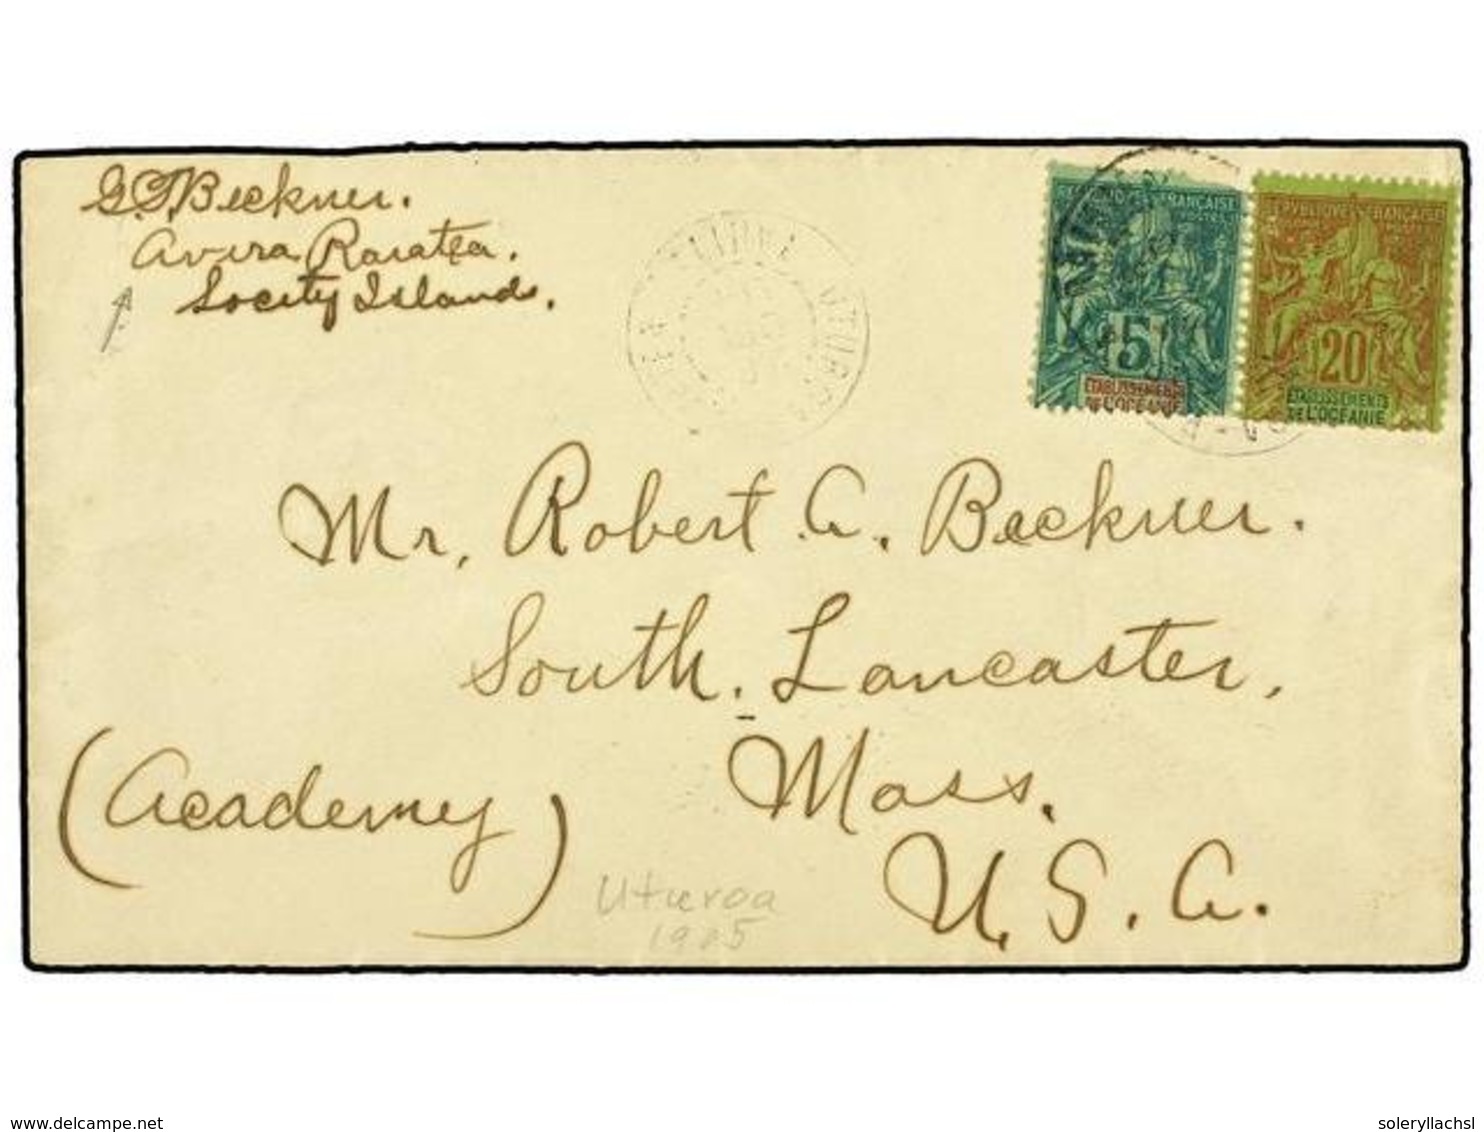 G.F. Beckner.
Avera Raiatea.
Socity Islands.
UTUROA
RÉPUBLIQUE FRANÇAISE
POSTES
5
ÉTABLISSEMENTS
DE L'OCÉANIE
RÉPUBLIQUE FRANÇAISE
20
ÉTABLISSEMENTS
DE L'OCÉANIE
Mr. Robert A. Beckner.
South. Lancaster,
Mass.
(Academy)
U.S.A.
Uturoa
1905
delcampe.net
soleryllachsl